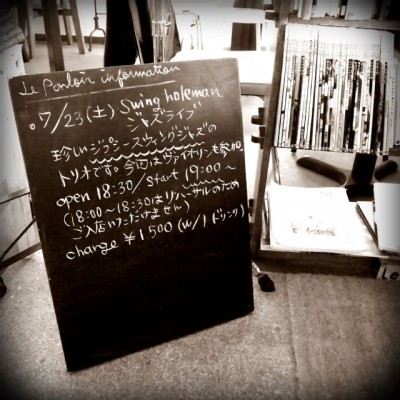 Le Parloir information
○7/23(土) Swing holeman
ジャズライブ
珍しいジプシースウィングジャズの
トリオです。今回はヴァイオリンも参加。
open 18:30/start 19:00〜
(18:00〜18:30はリハーサルのため
ご入店いただけません)
charge ¥1500 (w/1ドリンク)